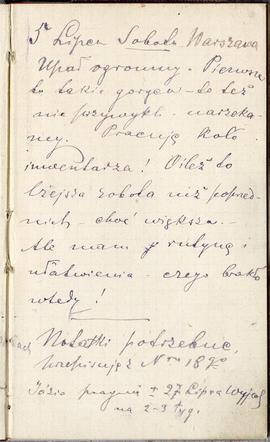 5 Lipca Sobota Warszawa
Upał ogromny. Pierwsze
to takie gorące – to też
nie przywykli – narzeka-
my. Pracuję koło
inwentarza! O ileż to
lżejsza robota niż poprzed-
nich – choć większa –
Ale mam rutynę i
ułatwienia – czego brakło
wtedy!
Notatki potrzebne,
przepisuję z Nru 18go
Józio pragnie ± 27 Lipca wyjech
na 2–3 tyg.